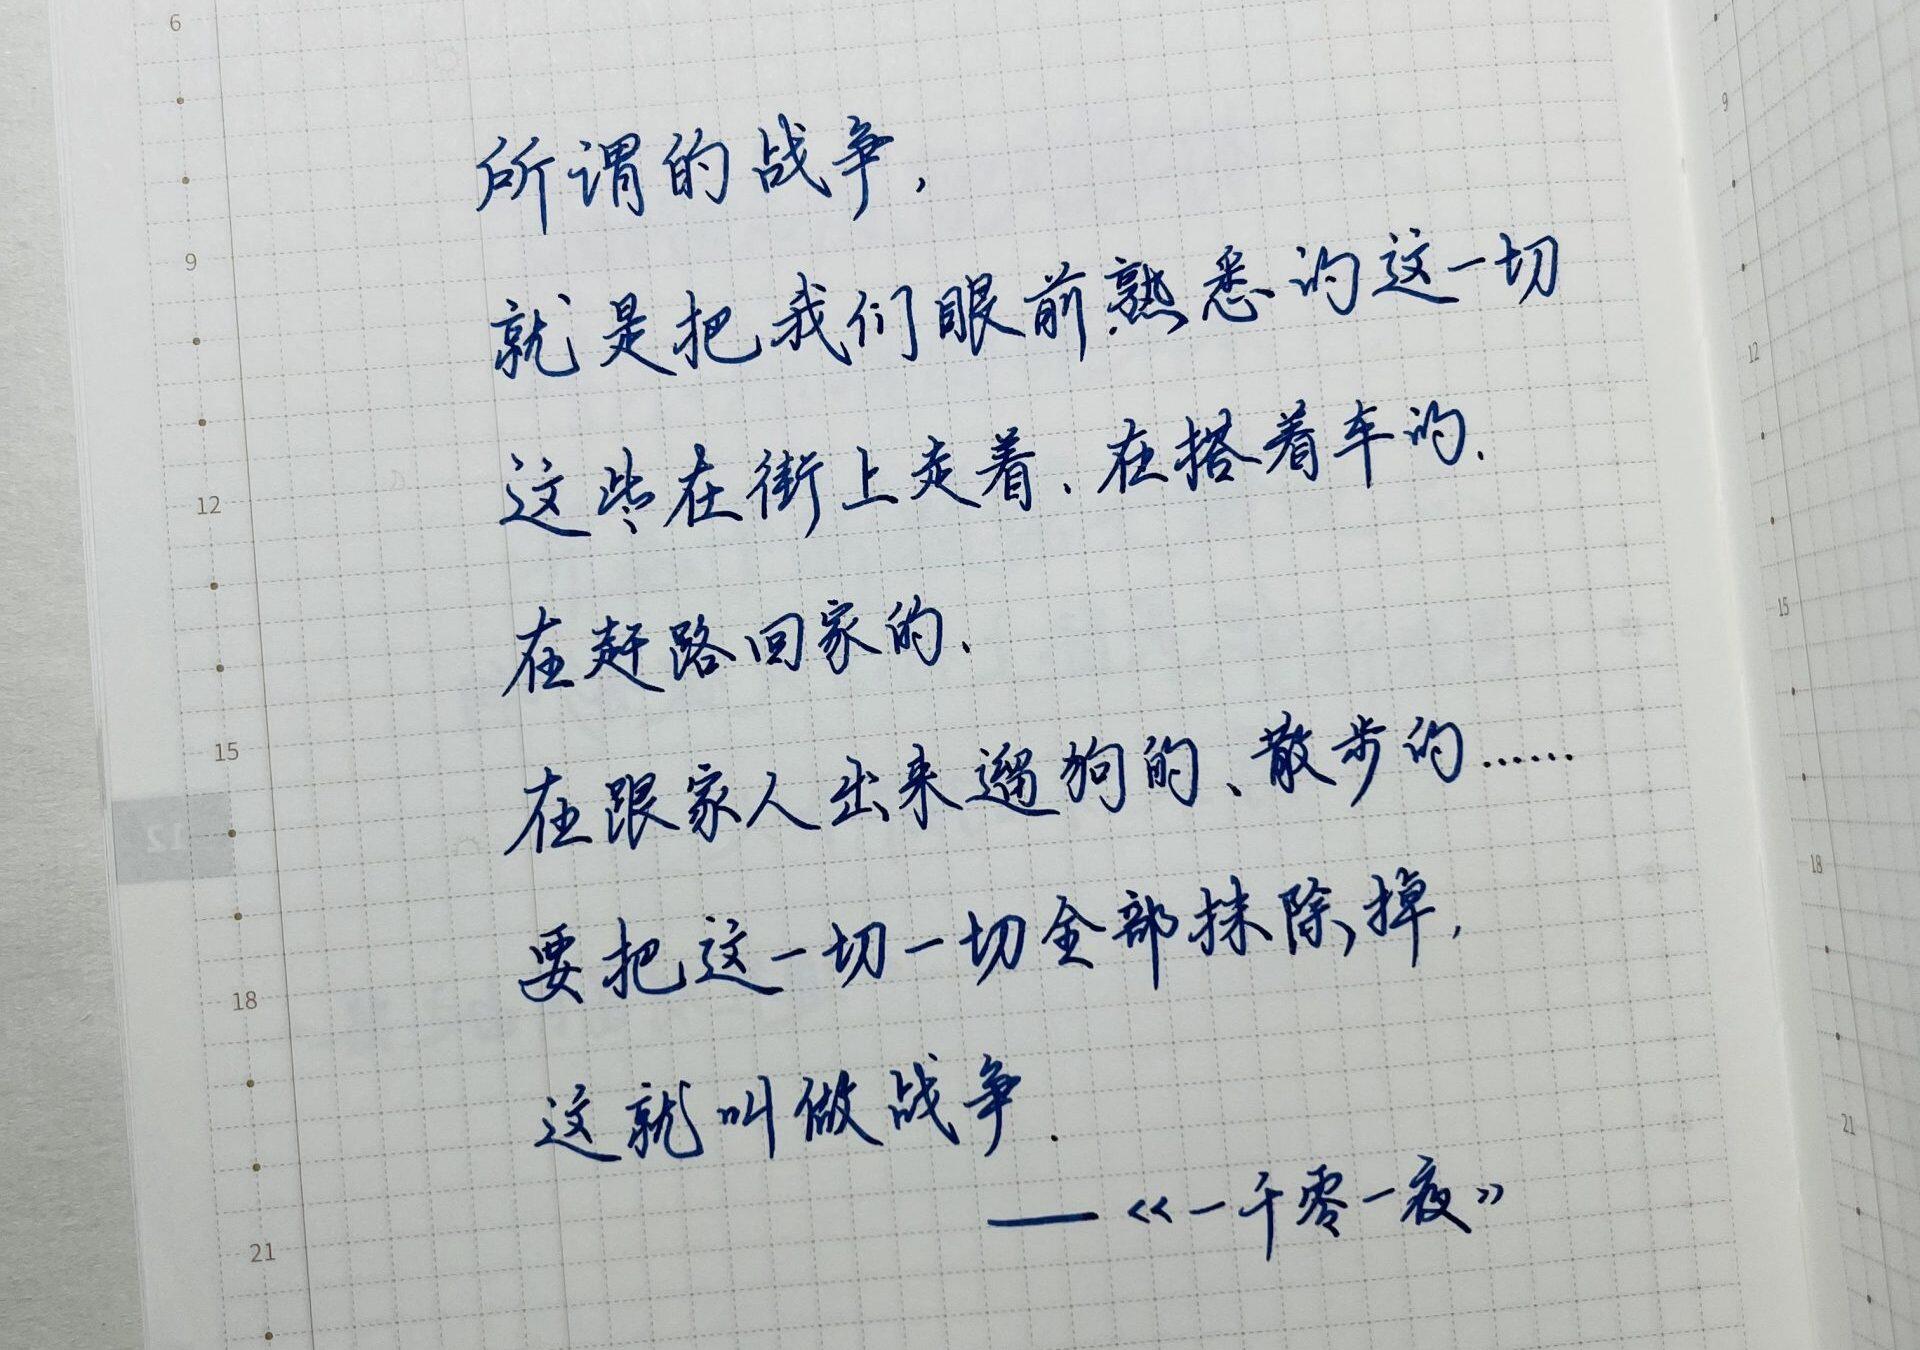 所谓的战争,
就是把我们眼前熟悉的这一切
这些在街上走着、在搭着车的、
在赶路回家的、
在跟家人出来遛狗的、散步的……
要把这一切一切全部抹除掉,
这就叫做战争.
——《一千零一夜》
6
9
12
15
18
21
12
9
12
15
18
21